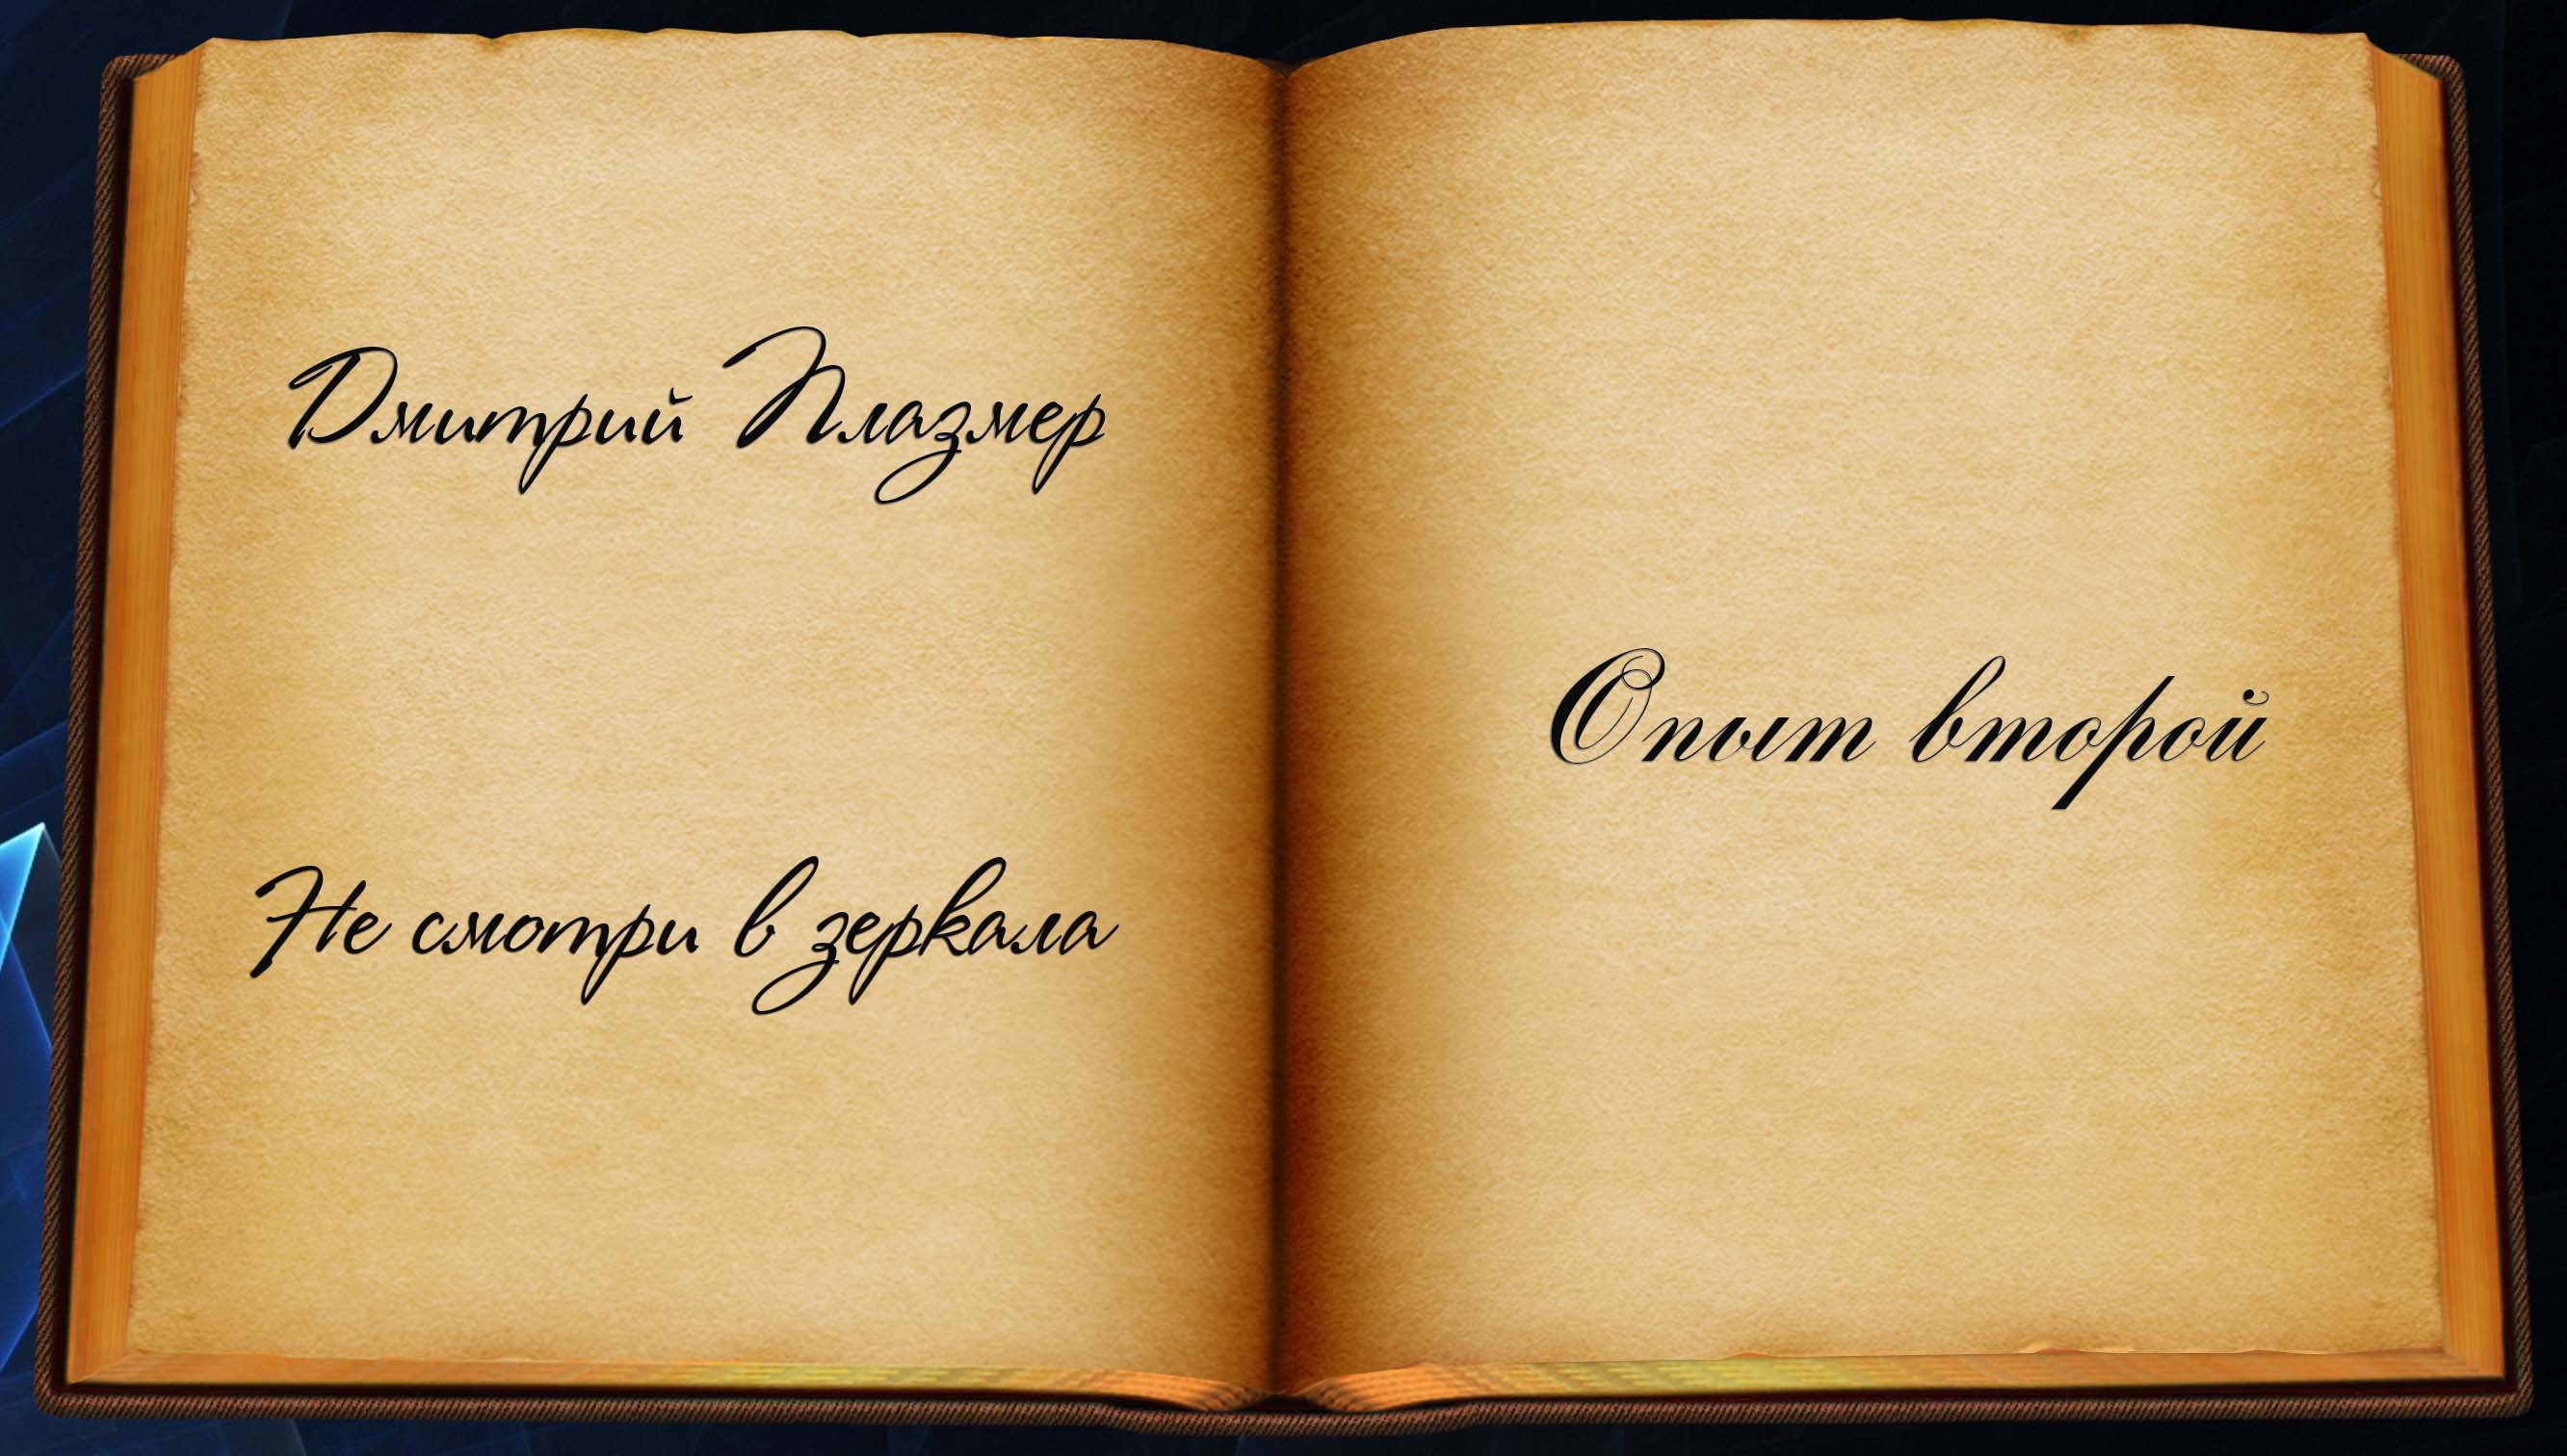 Дмитрий Плазмер
Не смотри в зеркала
Опыт второй